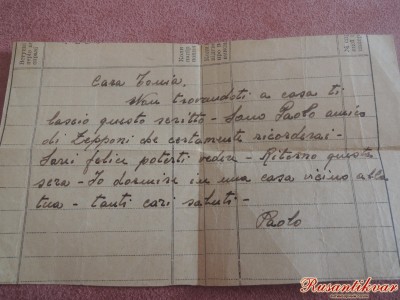 Cara Tonia,
Non trovandoti a casa ti
lascio questo scritto - Sono Paolo amico
di Zepponi che certamente ricorderai -
Sarei felice poterti vedere - Ritorno questa
sera - Io dormire in una casa vicino alla
tua - tanti cari saluti -
Paolo
Rusantikvar